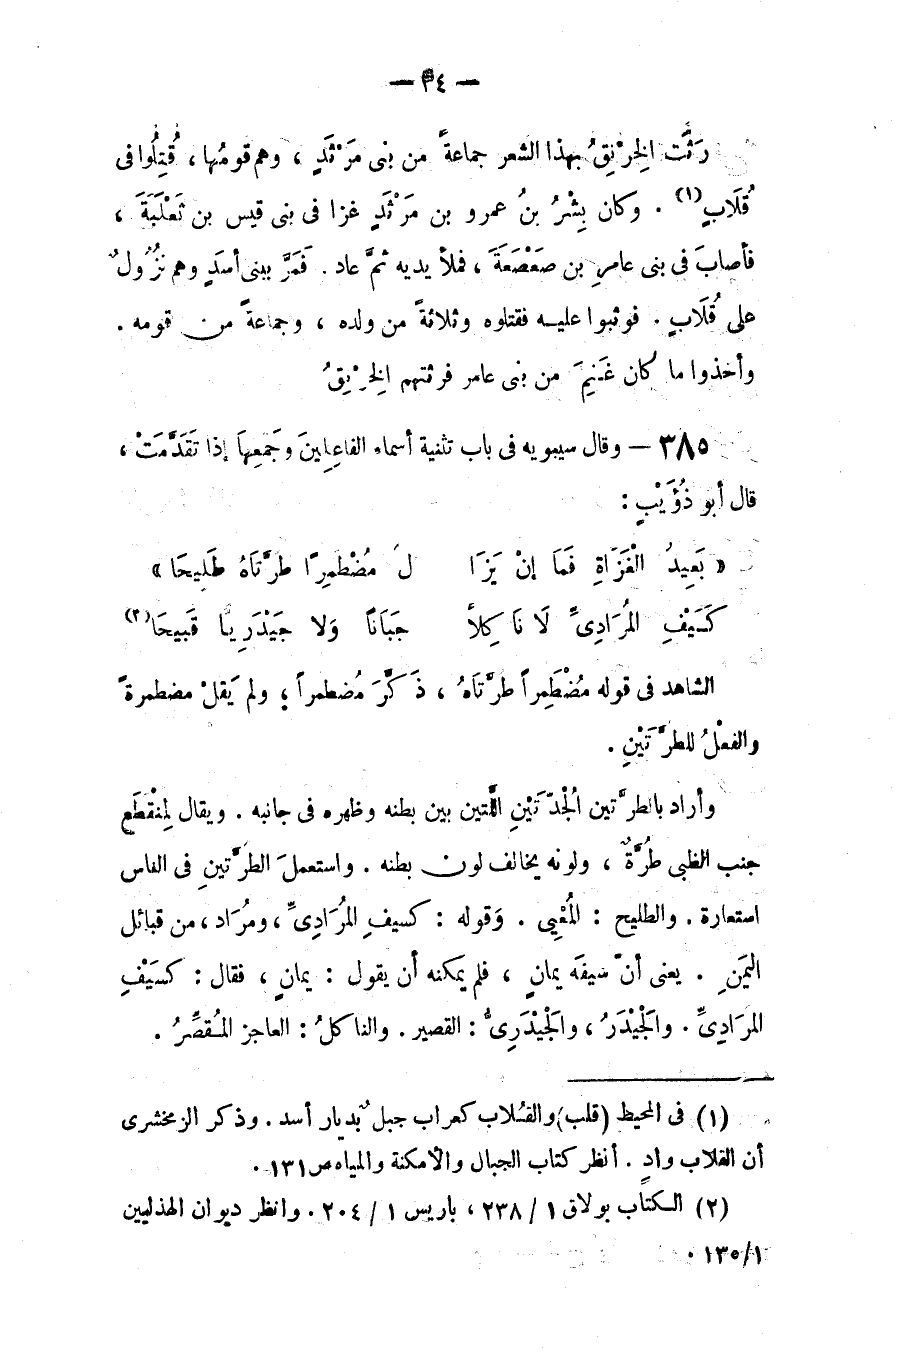 — ٣٤ —
رَثَّت الِخرْنِقُ بهذا الشعر جماعةً من بنى مَرْثَدٍ ، وهم قومُها ، قُتِلُوا فى
قُلَابٍ(١) . وكان بِشْرُ بنُ عمرو بن مَرْثَدٍ غزا فى بنى قيس بن ثَعْلَبَةَ ،
فأصابَ فى بنى عامرِ بن صَعْصَعَةَ ، فملأ يديه ثمَّ عاد . فَمَرَّ ببنى أسَدٍ وهم نزُولٌ
على قُلَابٍ . فوثبوا عليه فقتلوه وثلاثةً من ولده ، وجماعةً من قومه .
وأخذوا ما كان غَنِيمَ من بنى عامر فرثتهم الِخرْنِقُ
٣٨٥ — وقال سيبويه فى باب تثنية أسماء الفاعِلِينَ وجَمْعِهَا إذا تَقَدَّمَتْ ،
قال أبو ذُؤَيْبٍ :
« بَعِيدُ الْغَزَاةِ فَمَا إنْ يَزَا لُ مُضْطَمِرًا طرَّتاَهُ طَلِيحَا »
كَسَيْفِ المُرَادِىِّ لَا نَاكِلاً جَبَانًا وَلا جَيْدَرِيًّا قَبيحَا(٢)
الشاهد فى قوله مُضْطَمِراً طرَّتاَهُ ، ذَكَّرَ مُضطمراً ؛ ولم يَقلْ مضطمرةً
والفعْلُ للطرَّتَيْنِ .
وأراد بالطرَّتين الْجُدّتَيْنِ اللّتين بين بطنه وظهره فى جانبه . ويقال لِمنْقطَعِ
جنب الظبى طُرَّةٌ ، ولونه يخالف لون بطنه . واستعملَ الطرَّتينِ فى الفاس
استعارة . والطليح : المُعْيِى . وَقوله : كسيفِ المُرَادِىِّ ، ومُرَاد ، من قبائل
اليَمَنِ . يعنى أنّ سَيفَه يمانٍ ، فلم يمكنه أن يقول : يمانٍ ، فقال : كَسَيْفِ
المرَادِىِّ . والَجْيْدَرُ ، والَجْيْدَرِىُّ : القصير . والناكلُ : العاجز المُقَصِّرُ .
(١) فى المحيط (قلب) والقُلاب كعراب جبل بديار أسد . وذكر الزمخشرى
أن القلاب وادٍ . أنظر كتاب الجبال والأمكنة والمياه ص ١٣١ .
(٢) الكتاب بولاق ١ / ٢٣٨ ، باريس ١ / ٢٠٤ . وانظر ديوان الهذليين
١/ ١٣٥ .